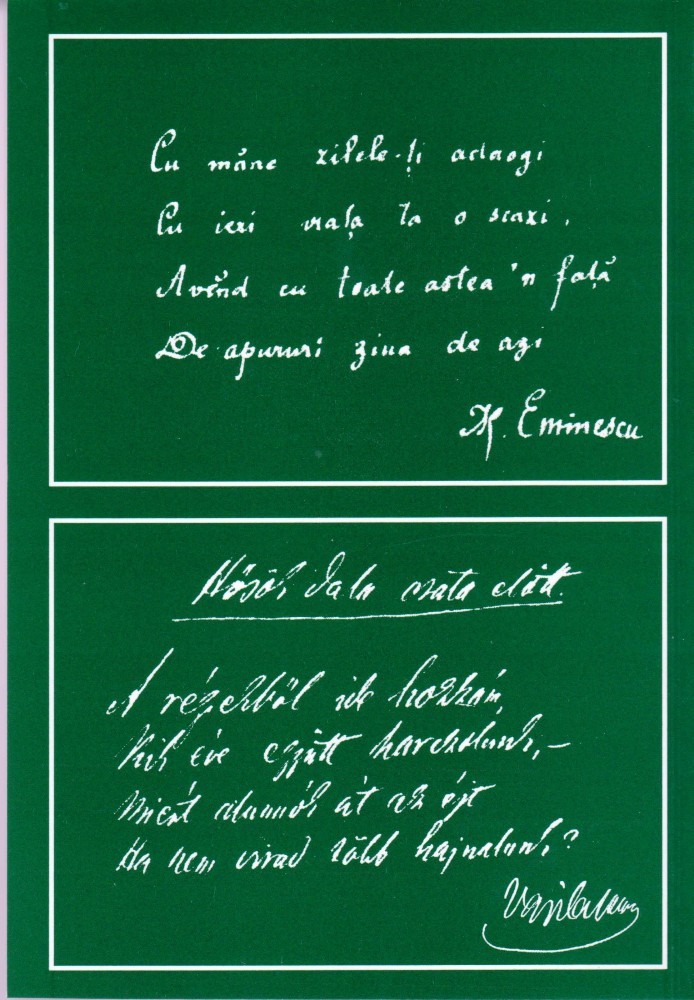 Cu mâne zilele-ți adaogi
Cu ieri viața ta o scazi,
Avĕnd cu toate astea 'n față
De-apururi ziua de azi
M. Eminescu
Hősök dala csata előtt.
A hozzám,
Kik éve együtt harczolunk, –
Miért alunnók át az éjt
Ha nem virad több hajnalunk?